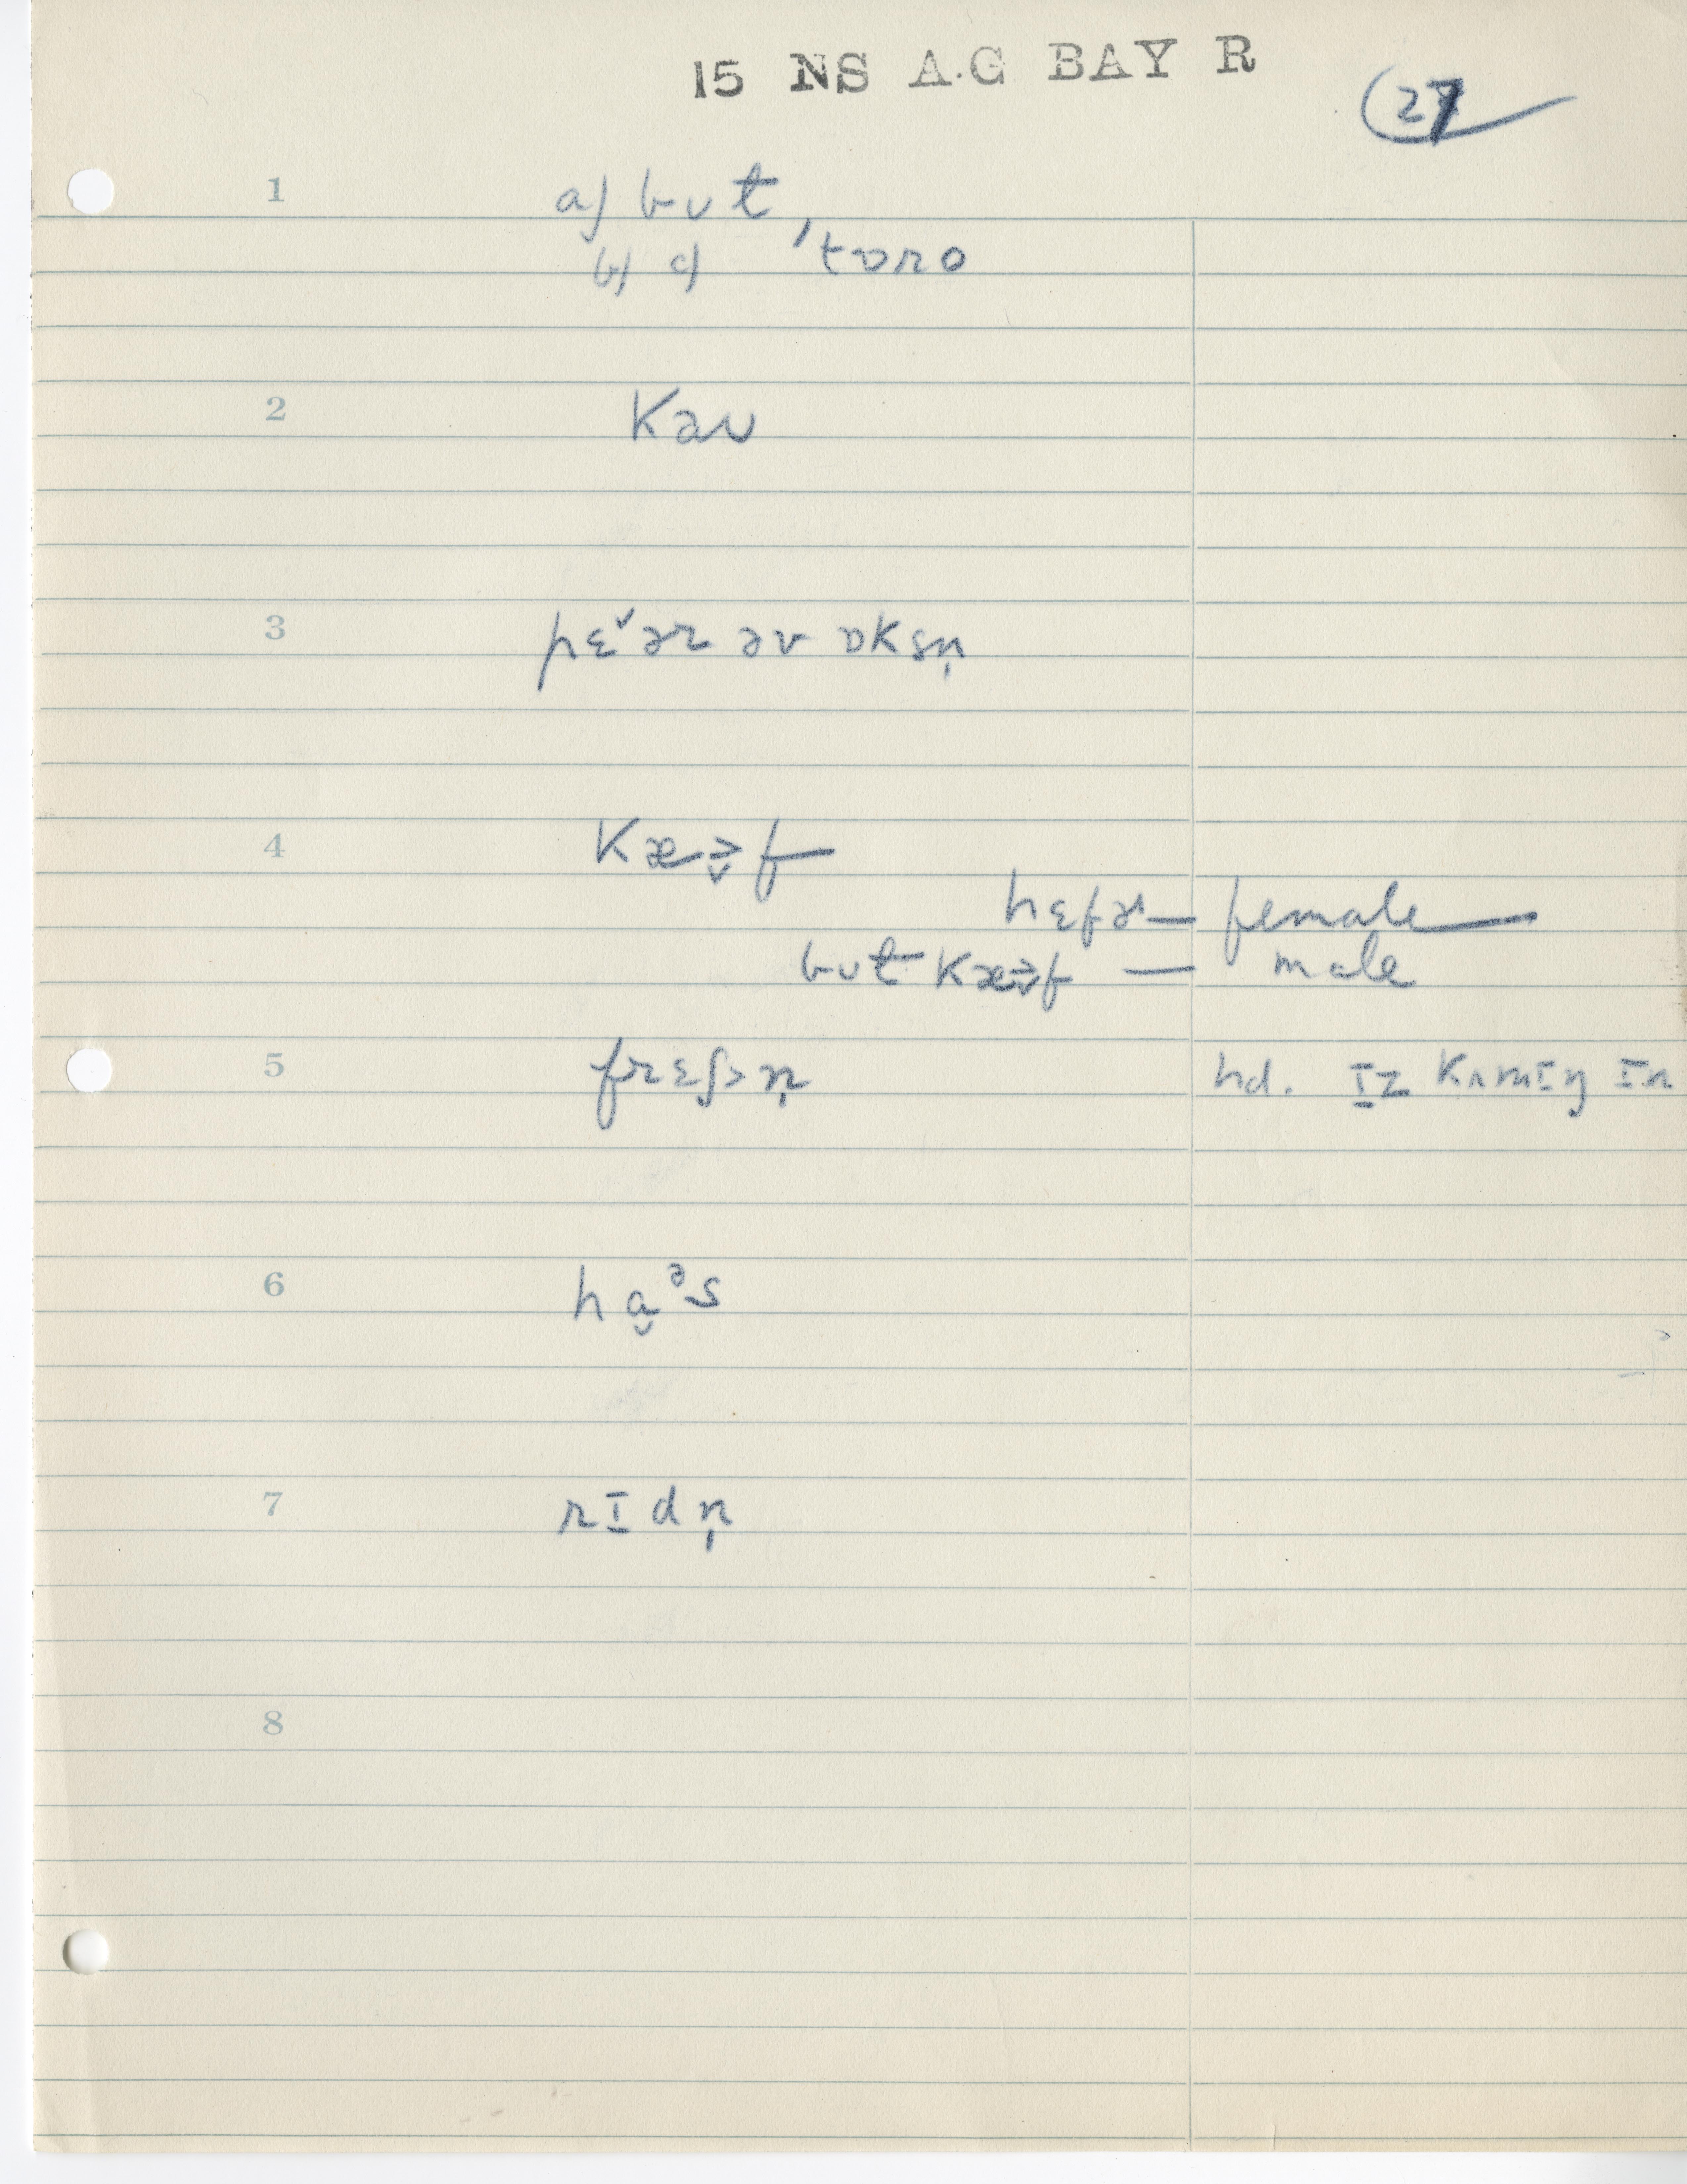 15 NS A.G BAY R
27
1 a) but,
b) c) ˈtɒro
2 kau
3 pɛˇər əv ɒksn̩
4 kæə̬f
hɛfɚ — female
but kæə̬f — male
5 frɛʃn̩ hd. ɪz kʌmɪŋ ɪn
6 ha̬ᵊs
7 rɪdn̩
8